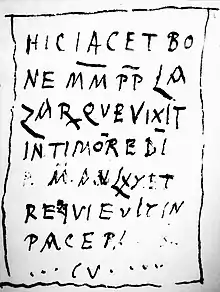 HIC IACET BO
NE MM PP LA
ZAR QVE VIXIT
IN TIMORE DI
M. AN LXV ET
REQVIEVIT IN
PACE P
CV